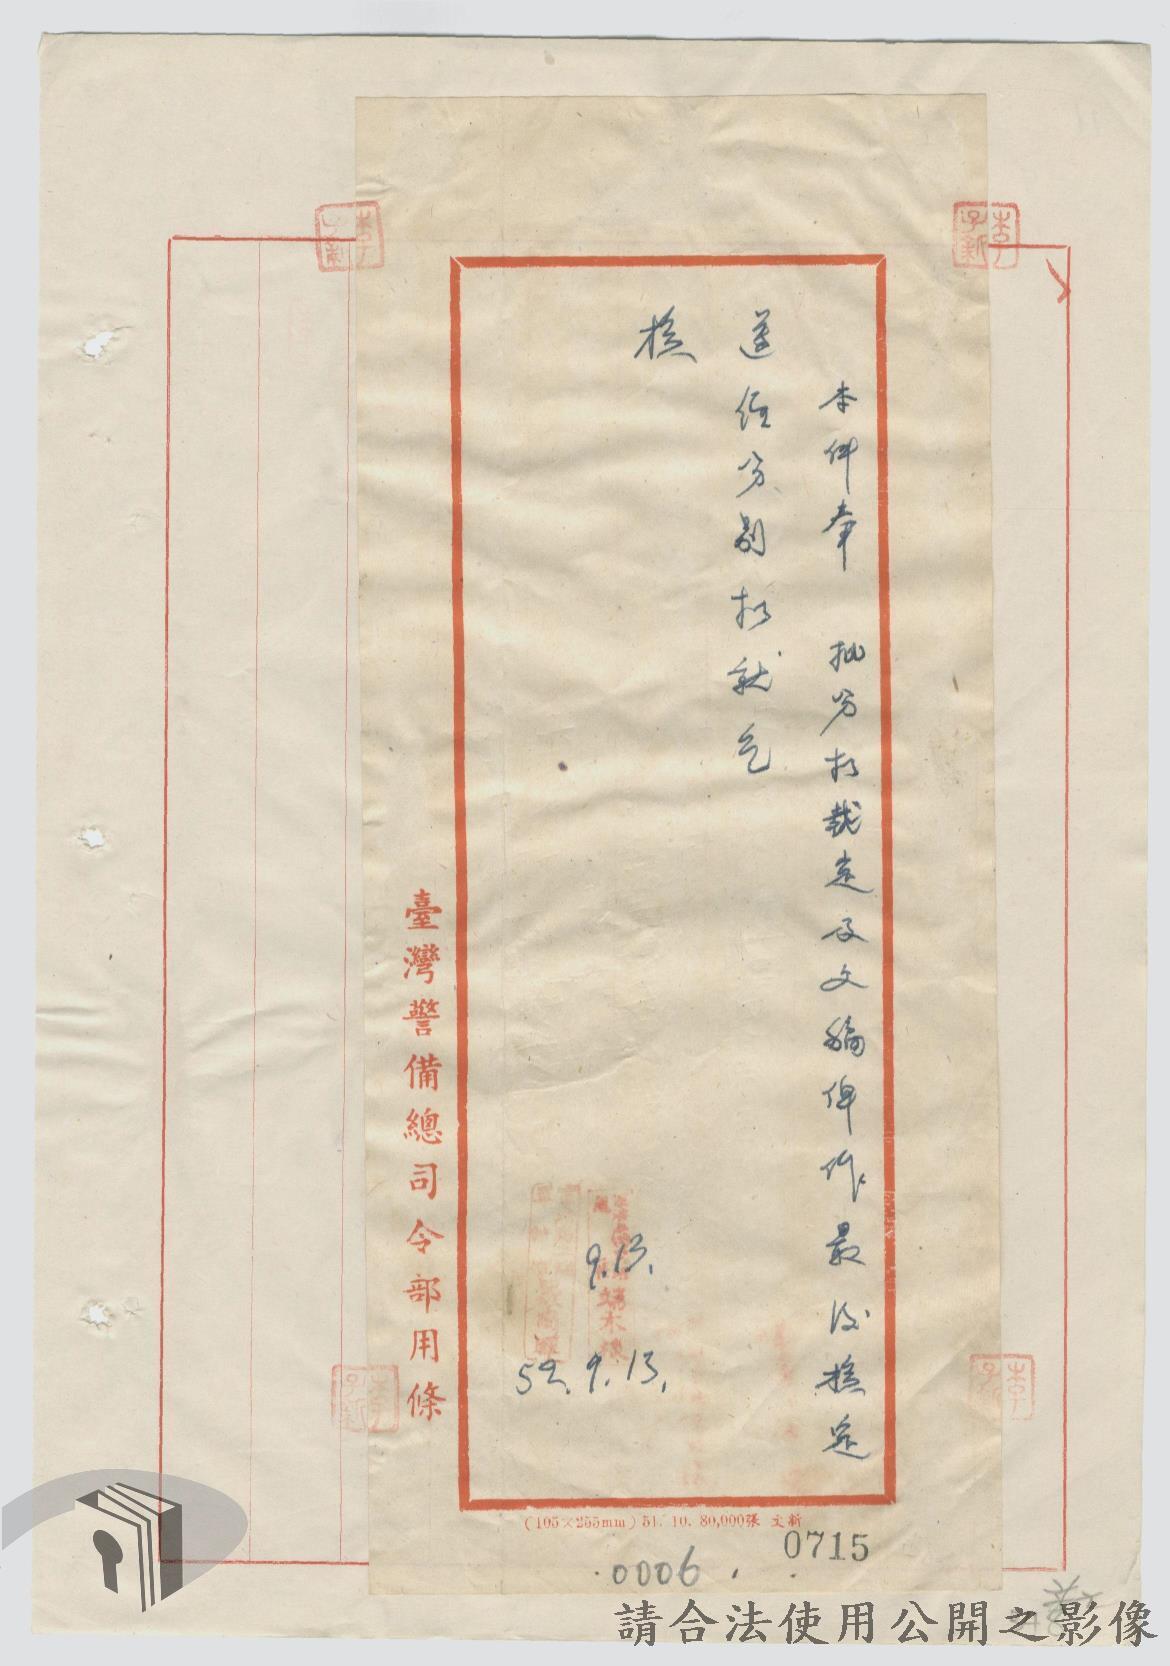 本件奉 批分擬裁定及文稿俾作最後核定
遵經分別擬就乞
核
9.13.
52.9.13.
臺灣警備總司令部用條
(105×255mm) 51. 10. 80,000張 文新
0715
0006
請合法使用公開之影像